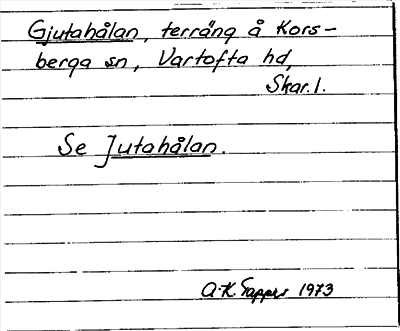 Gjutahålan, terräng å Kors-
berga sn, Vartofta hd,
Skar. l.
Se Jutahålan.
A.-K. 1973